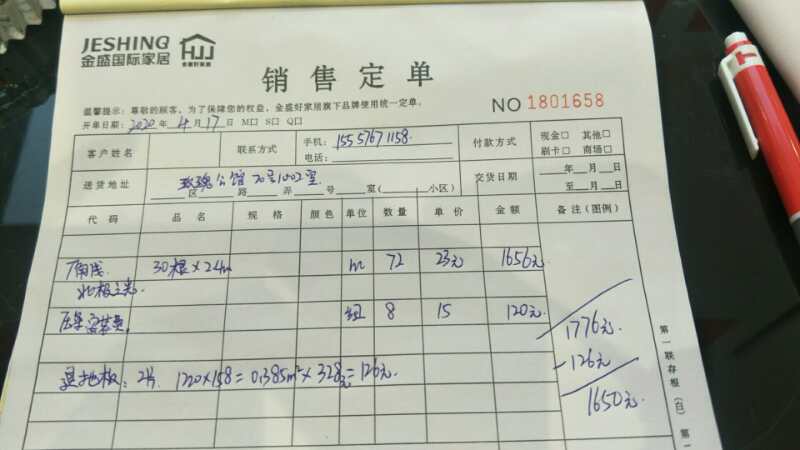 JESHING
金盛国际家居
金盛好家居
销售定单
温馨提示：尊敬的顾客，为了保障您的权益，金盛好家居旗下品牌使用统一定单。
NO 1801658
开单日期：2020年4月17日 M口 S口 Q口
客户姓名 联系方式 手机：15557671158. 电话： 付款方式 现金□ 其他□ 刷卡□ 商场□
送货地址 玫瑰公馆20号1002室 区 路 弄 号 室( 小区) 交货日期 年 月 日 至 月 日
代码 品名 规格 颜色 单位 数量 单价 金额 备注(图例)
角线 30根×24m m 72 23元 1656元
组 8 15 120元
1776元
退地板：2片 1220×158=0.385m²×328元=126元.
-126元
1650元
第一联存根(白) 第二